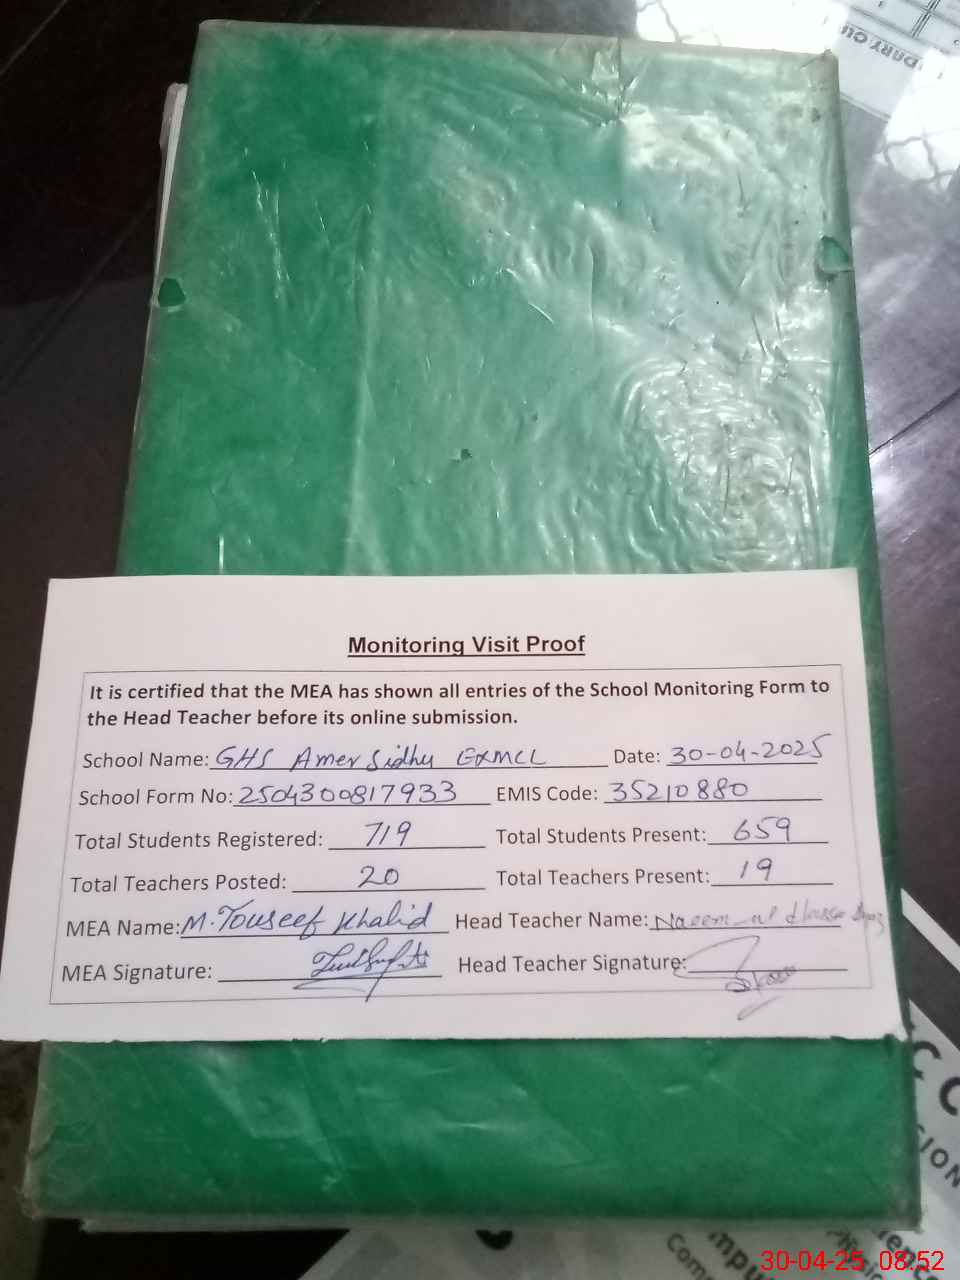 DARY CU
Monitoring Visit Proof
It is certified that the MEA has shown all entries of the School Monitoring Form to
the Head Teacher before its online submission.
School Name: GHS Amer Sidhu ExMCL Date: 30-04-2025
School Form No: 2504300817933 EMIS Code: 35210880
Total Students Registered: 719 Total Students Present: 659
Total Teachers Posted: 20 Total Teachers Present: 19
MEA Name: M. Touseef Khalid Head Teacher Name: Naeem-ul
MEA Signature: Head Teacher Signature:
C C
ION
mpu
Com
30-04-25 08:52